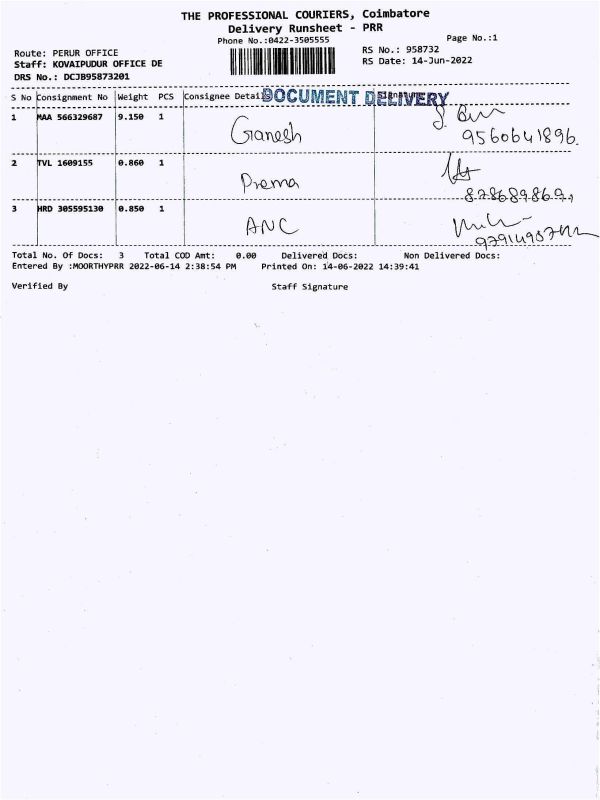 THE PROFESSIONAL COURIERS, Coimbatore
Delivery Runsheet - PRR
Phone No.:0422-3505555
Page No.:1
Route: PERUR OFFICE
RS No.: 958732
Staff: KOVAIPUDUR OFFICE DE
RS Date: 14-Jun-2022
DRS No.: DCJB95873201
S No Consignment No Weight PCS Consignee Details Signature
DOCUMENT DELIVERY
1 MAA 566329687 9.150 1 Ganesh
9560641896.
2 TVL 1609155 0.860 1 Prema
3 HRD 305595130 0.850 1 ANC
Total No. Of Docs: 3 Total COD Amt: 0.00 Delivered Docs: Non Delivered Docs:
Entered By :MOORTHYPRR 2022-06-14 2:38:54 PM Printed On: 14-06-2022 14:39:41
Verified By Staff Signature